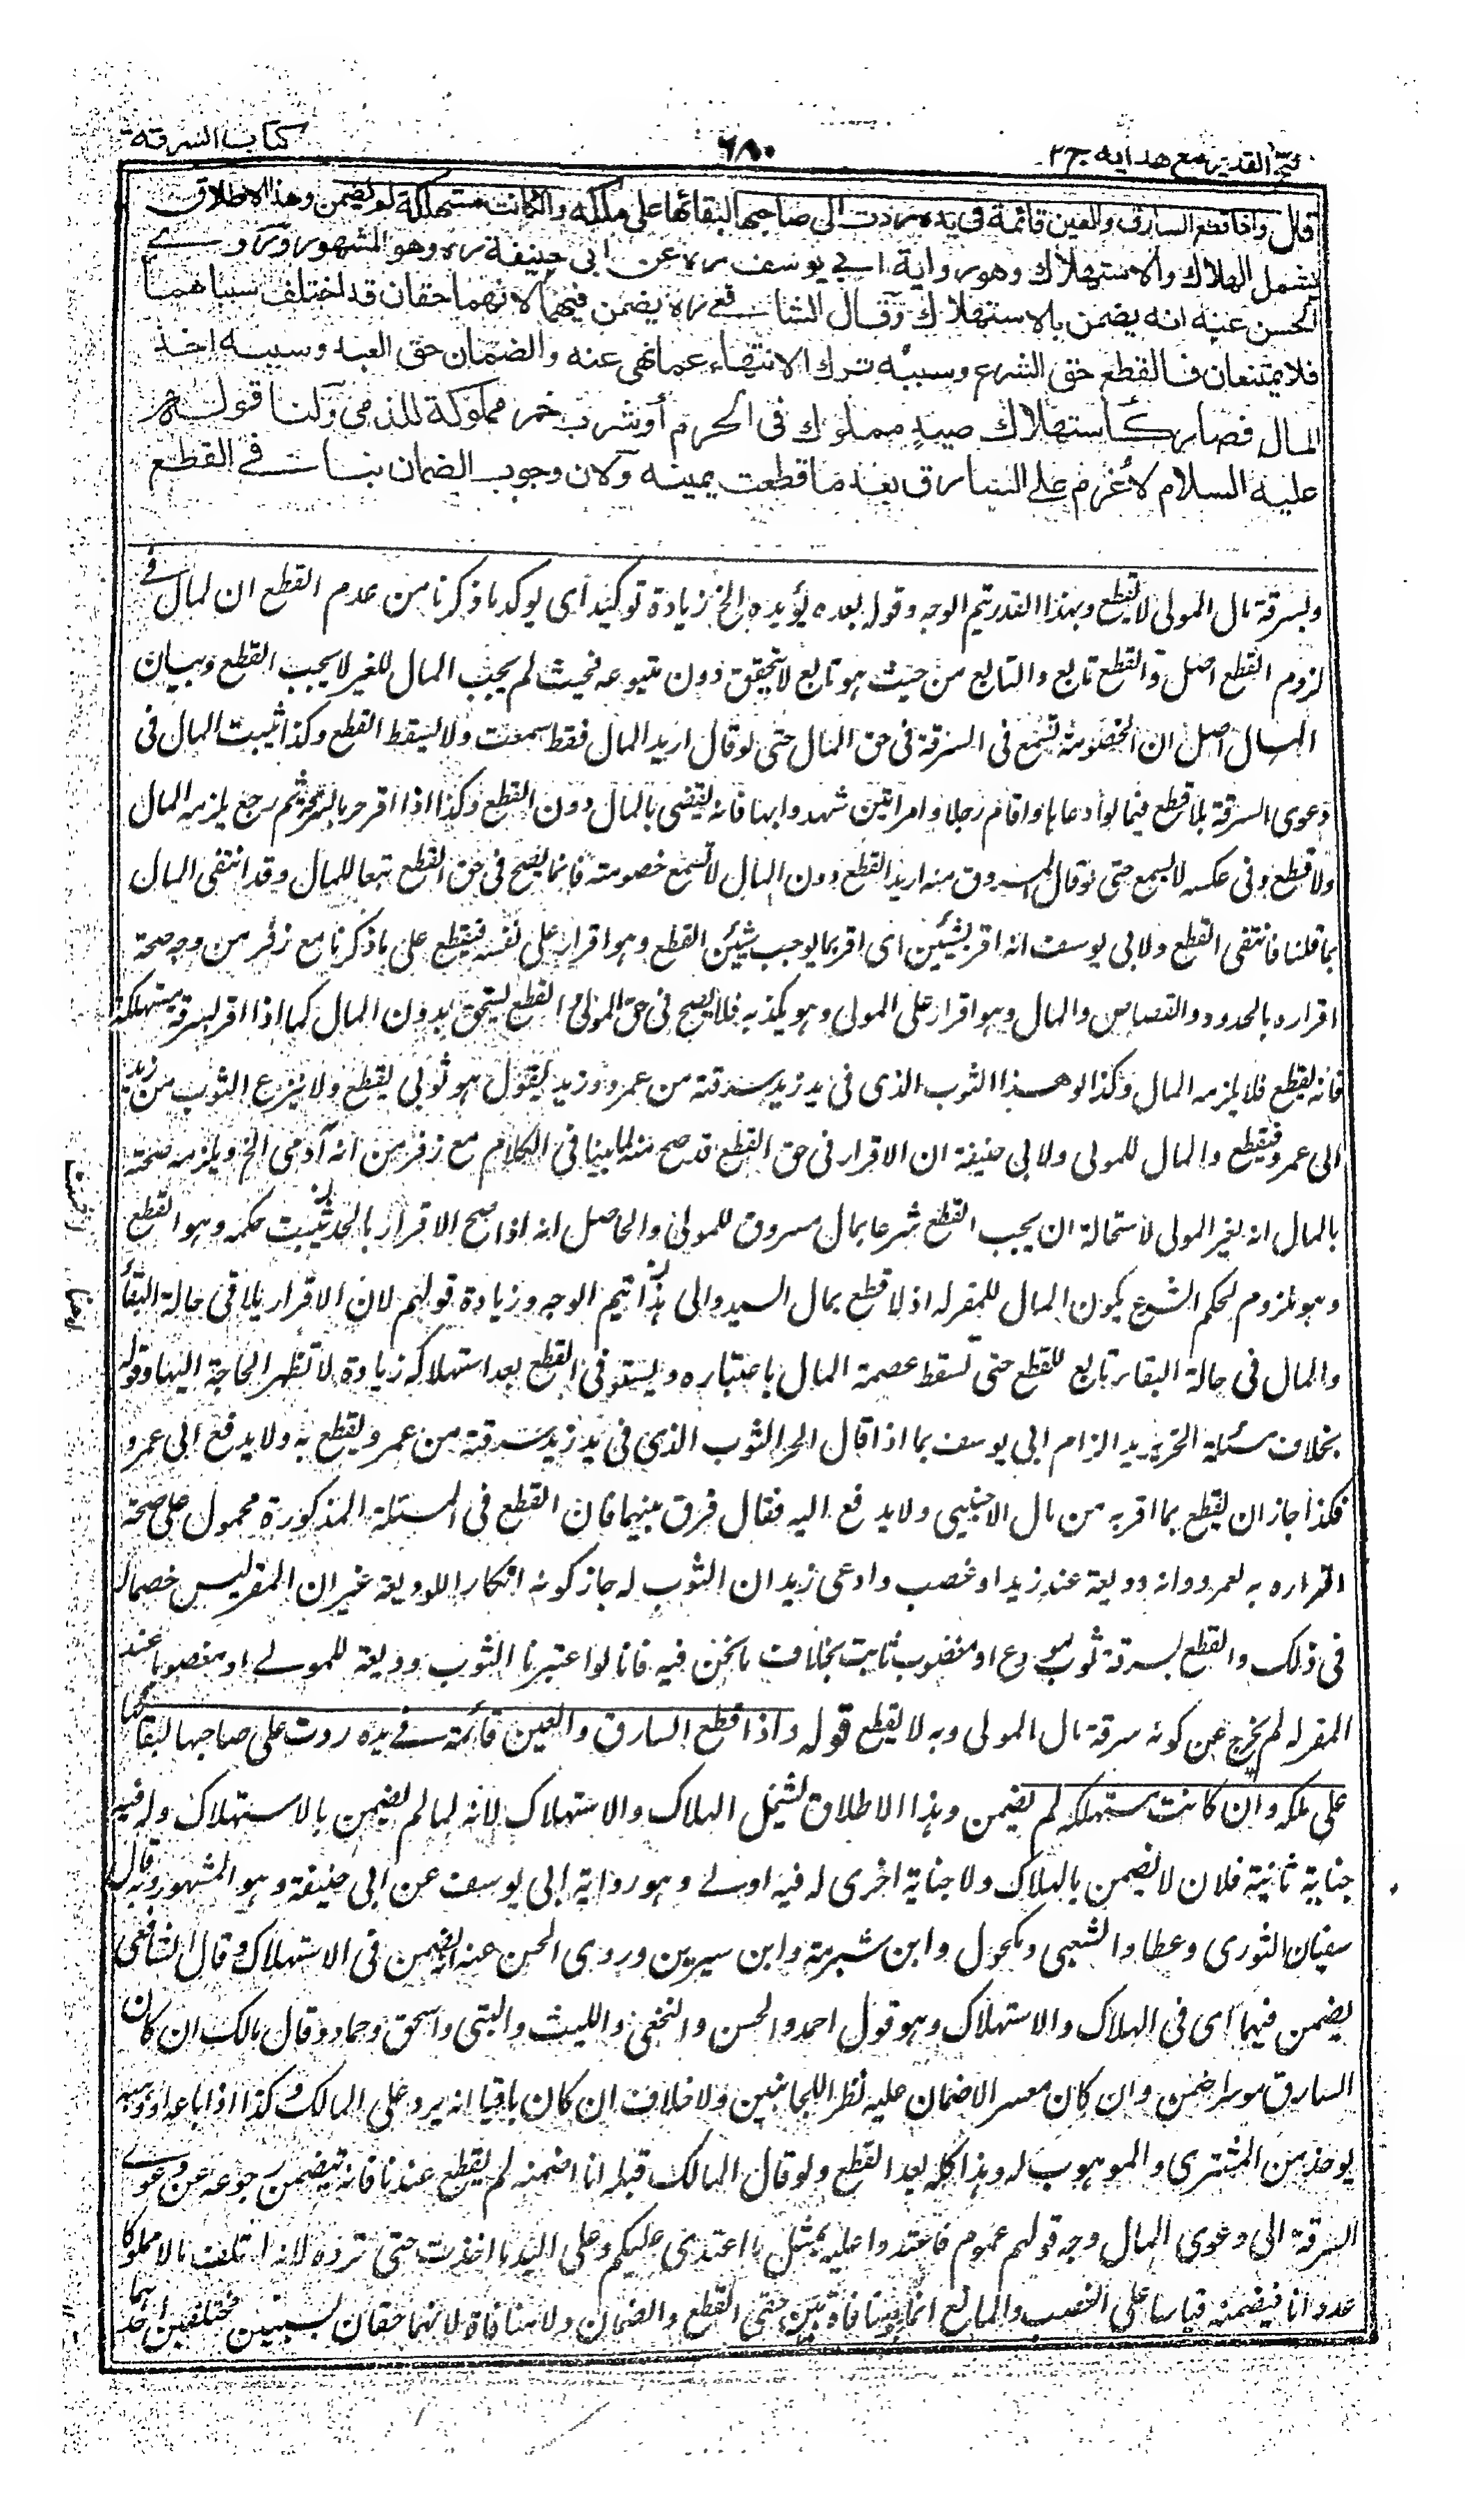 فتح القدير مع هدايه ج ٢
٦٨٠
كتاب السرقة
قال واذا قطع السارق والعين قائمة في يده ردت الى صاحبها لبقائها على ملكه وان كانت مستهلكة لم يضمن وهذا الاطلاق
يشمل الهلاك والاستهلاك وهو رواية ابي يوسف ره عن ابى حنيفة ره وهو المشهور وروى
الحسن عنه انه يضمن بالاستهلاك وقال الشافعي ره يضمن فيهما لانهما حقان قد اختلف سبباهما
فلا يمتنعان فالقطع حق الشرع وسببه ترك الانتهاء عما نهى عنه والضمان حق العبد وسببه اخذ
المال فصار كاستهلاك صيد مملوك فى الحرم او شرب خمر مملوكة للذمى ولنا قوله
عليه السلام لا غرم على السارق بعد ما قطعت يمينه ولان وجوب الضمان ينافي القطع
وبسرقة مال المولى لا يقطع وبهذا القدر يتم الوجه وقوله بعده يؤيده الخ زيادة توكيد اى يوكد ما ذكرنا من عدم القطع ان المال في
لزوم القطع اصل والقطع تابع والتابع من حيث هو تابع لا يتحقق دون متبوعه فحيث لم يجب المال للغير لا يجب القطع وبيان
المال اصل ان الخصومة تسمع فى السرقة فى حق المال حتى لو قال اريد المال فقط سمعت ولا يسقط القطع وكذا يثبت المال فى
دعوى السرقة بلا قطع فيما لو ادعاها واقام رجلا وامراتين شهدوا بها فانه يقضى بالمال دون القطع وكذا اذا اقر حر بالسرقة ثم رجع يلزمه المال
ولا قطع وفى عكسه لا يسمع حتى لو قال المسروق منه اريد القطع دون المال لا تسمع خصومته فانما يصح فى حق القطع تبعا للمال وقد انتفى المال
بما قلنا فانتفى القطع ولابى يوسف انه اقر بشيئين اى اقر بما يوجب شيئين القطع وهو اقرار على نفسه فيقطع على ما ذكرنا مع زفر من وجه صحة
اقراره بالحدود والقصاص والمال وهو اقرار على المولى وهو يكذبه فلا يصح فى حق المولى والقطع يستحق بدون المال كما اذا اقر بسرقة مستهلكة
فانه يقطع فلا يلزمه المال وكذا لو هذا الثوب الذى فى يد زيد سرقته من عمرو وزيد يقول هو ثوبى يقطع ولا ينزع الثوب من زيد
الى عمرو فيقطع والمال للمولى ولابى حنيفة ان الاقرار فى حق القطع قد صح منه لما بينا فى الكلام مع زفر من انه آدمى الخ ويلزمه صحته
بالمال انه لغير المولى لاستحالة ان يجب القطع شرعا بمال مسروق للمولى والحاصل انه اذا صح الاقرار بالحد يثبت حكمه وهو القطع
وهو ملزوم لحكم الشرع بكون المال للمقر له اذ لا قطع بمال السيد والى هذا يتم الوجه وزيادة قولهم لان الاقرار يلاقى حالة البقاء
والمال فى حالة البقاء تابع للقطع حتى تسقط عصمة المال باعتباره ويستوفى القطع بعد استهلاكه زيادة لا تظهر الحاجة اليها وقوله
بخلاف مسئلة الحر يريد الزام ابى يوسف بما اذا قال الحر الثوب الذى فى يد زيد سرقته من عمرو يقطع به ولا يدفع الى عمرو
فكذا جاز ان يقطع بما اقر به من مال الاجنبى ولا يدفع اليه فقال فرق بينهما فان القطع فى المسئلة المذكورة محمول على صحة
اقراره به لعمرو وانه وديعة عند زيد او غصب وادعى زيد ان الثوب له جاز كونه انكارا للوديعة غير ان المقر ليس خصما له
فى ذلك والقطع بسرقة ثوب مودع او مغصوب ثابت بخلاف ما نحن فيه فانا لو اعتبرنا الثوب وديعة للمولى او مغصوبا عند
المقر له لم يخرج عن كونه سرقة مال المولى وبه لا يقطع قوله واذا قطع السارق والعين قائمة في يده ردت على صاحبها لبقائها
على ملكه وان كانت مستهلكة لم يضمن وهذا الاطلاق يشمل الهلاك والاستهلاك لانه لما لم يضمن بالاستهلاك وله فيه
جناية ثانية فلان لا يضمن بالهلاك ولا جناية اخرى له فيه اولى وهو رواية ابى يوسف عن ابى حنيفة وهو المشهور وقال
سفيان الثورى وعطا والشعبى ومكحول وابن شبرمة وابن سيرين وروى الحسن عنه انه يضمن فى الاستهلاك وقال الشافعى
يضمن فيهما اى فى الهلاك والاستهلاك وهو قول احمد والحسن والنخعى والليث والبتى واسحق وحماد وقال مالك ان كان
السارق موسرا ضمن وان كان معسرا لا ضمان عليه نظرا للجانبين ولا خلاف ان كان باقيا انه يرد على المالك وكذا اذا باعه او وهبه
يوخذ من المشترى والموهوب له وهذا كله بعد القطع ولو قال المالك قبله انا اضمنه لم يقطع عندنا فانه يتضمن رجوعه عن دعوى
السرقة الى دعوى المال وجه قولهم عموم فاعتدوا عليه بمثل ما اعتدى عليكم وعلى اليد ما اخذت حتى ترده لانه اتلف مالا مملوكا
عدوانا فيضمنه قياسا على الغصب والمانع انما هو منافاة بين حقى القطع والضمان ولا منافاة لانهما حقان بسببين مختلفين احدهما